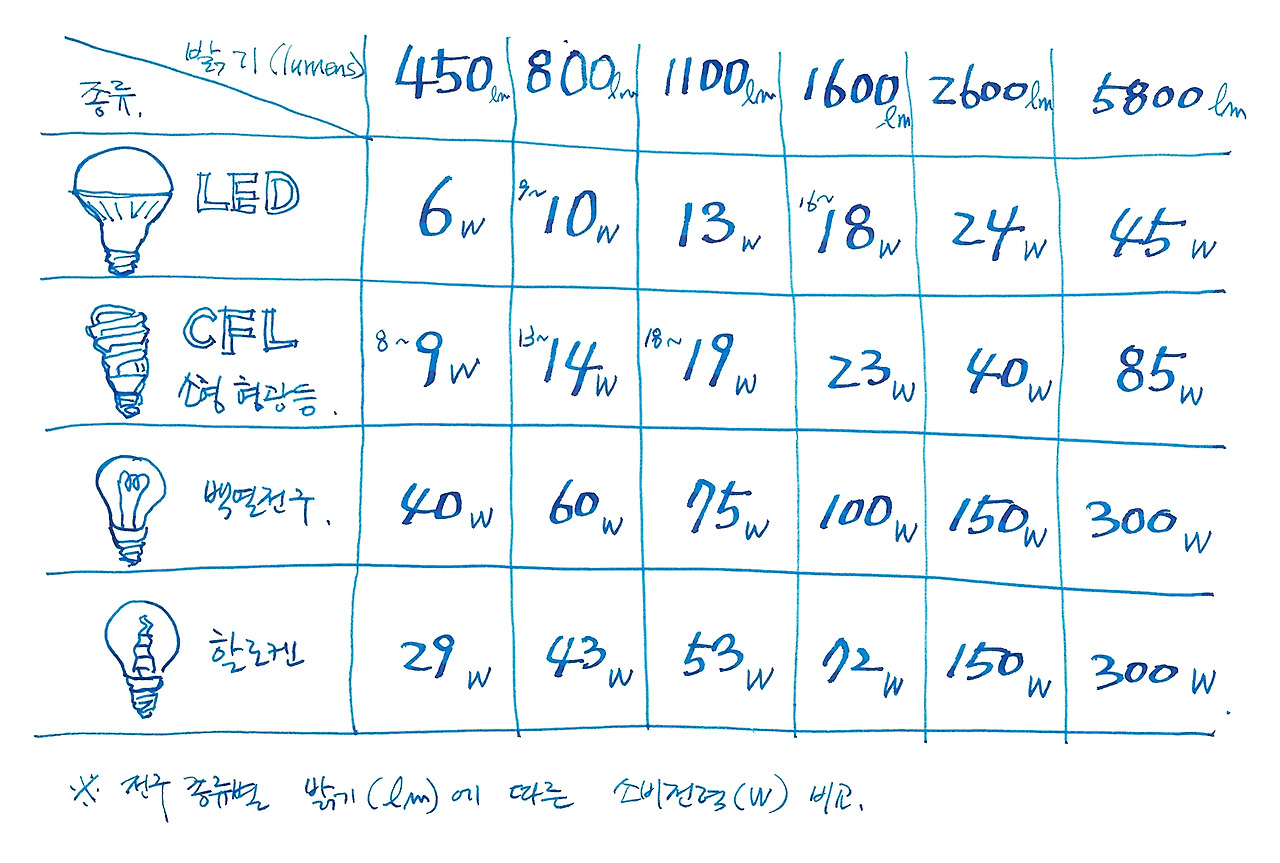 밝기(lumens) 450lm 800lm 1100lm 1600lm 2600lm 5800lm
종류.
LED 6W 9~10W 13W 16~18W 24W 45W
CFL 8~9W 13~14W 18~19W 23W 40W 85W
소형 형광등.
백열전구. 40W 60W 75W 100W 150W 300W
할로켄 29W 43W 53W 72W 150W 300W
※ 전구 종류별 밝기(lm)에 따른 소비전력(W) 비교.